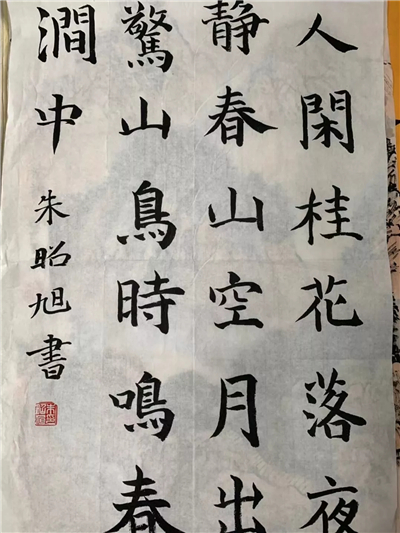 人閑桂花落夜
静春山空月出
驚山鳥時鳴春
澗中
朱昭旭書